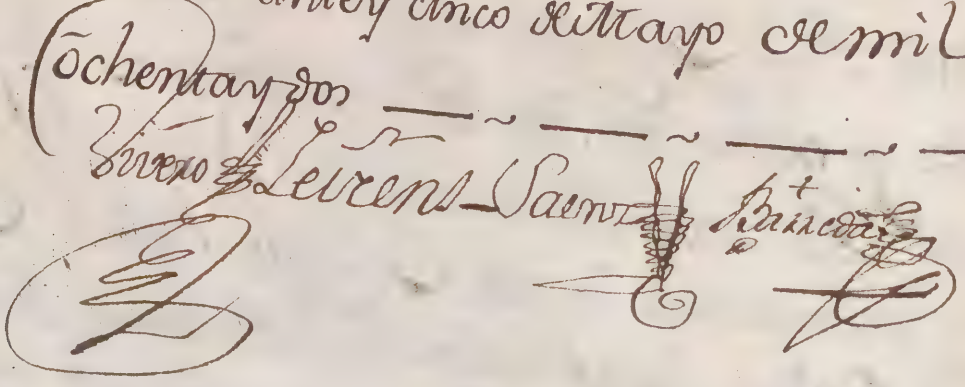 cinco de Mayo de mil
ochenta y dos
Vivero Leirens Saenz Barreda